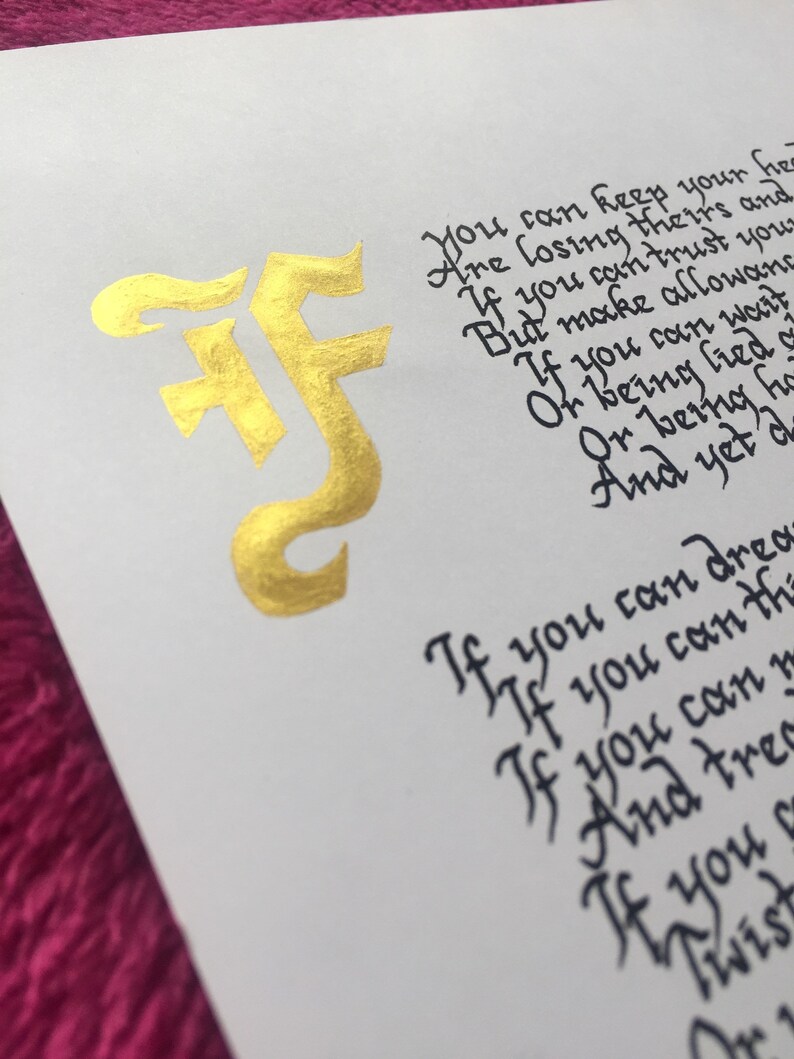 If
You can keep your
Are losing theirs and
If you can trust your
But make
If you can wait
Or being lied
Or being
And yet
If you can
If you can
If you can
And
If you
Or